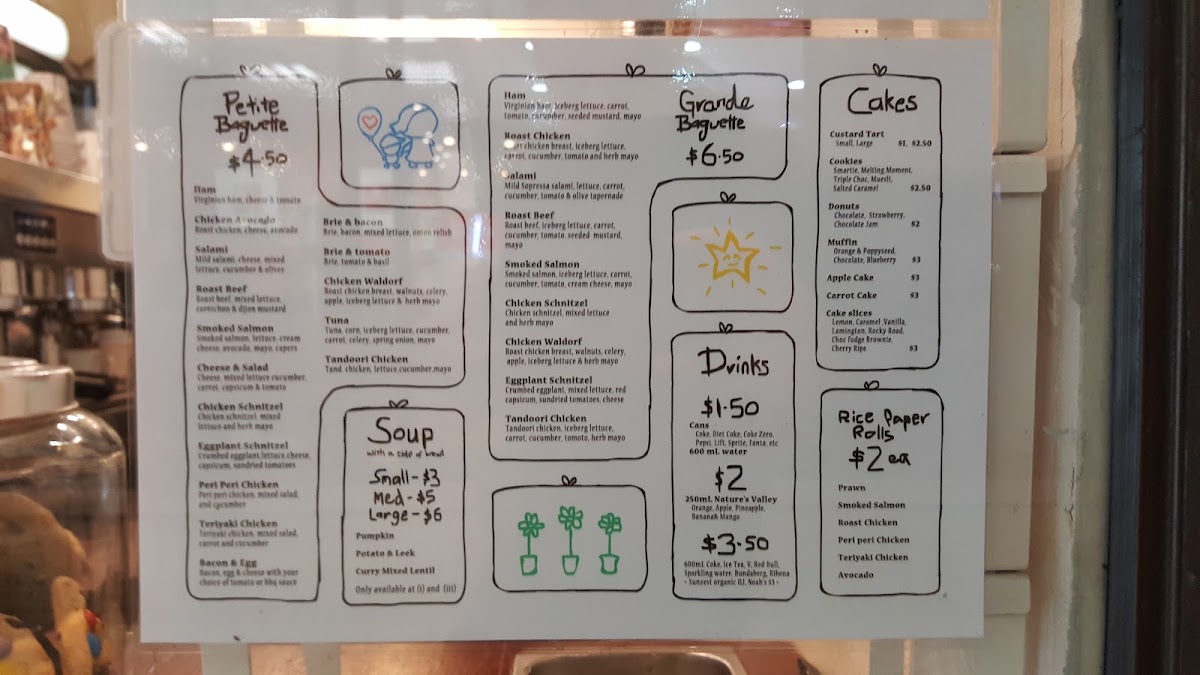 Petite
Baguette
$4.50
Ham
Virginian ham, cheese & tomato
Chicken Avocado
Roast chicken, cheese, avocado
Salami
Mild salami, cheese, mixed
lettuce, cucumber & olives
Roast Beef
Roast beef, mixed lettuce,
cornichon & dijon mustard
Smoked Salmon
Smoked salmon, lettuce, cream
cheese, avocado, mayo, capers
Cheese & Salad
Cheese, mixed lettuce cucumber,
carrot, capsicum & tomato
Chicken Schnitzel
Chicken schnitzel, mixed
lettuce and herb mayo
Eggplant Schnitzel
Crumbed eggplant, lettuce, cheese,
capsicum, sundried tomatoes
Peri Peri Chicken
Peri peri chicken, mixed salad,
and cucumber
Teriyaki Chicken
Teriyaki chicken, mixed salad,
carrot and cucumber
Bacon & Egg
Bacon, egg & cheese with your
choice of tomato or bbq sauce
Brie & bacon
Brie, bacon, mixed lettuce, onion relish
Brie & tomato
Brie, tomato & basil
Chicken Waldorf
Roast chicken breast, walnuts, celery,
apple, iceberg lettuce & herb mayo
Tuna
Tuna, corn, iceberg lettuce, cucumber,
carrot, celery, spring onion, mayo
Tandoori Chicken
Tand. chicken, lettuce, cucumber, mayo
Soup
with a side of bread
Small - $3
Med - $5
Large - $6
Pumpkin
Potato & Leek
Curry Mixed Lentil
Only available at (i) and (iii)
Grande
Baguette
$6.50
Ham
Virginian ham, iceberg lettuce, carrot,
tomato, cucumber, seeded mustard, mayo
Roast Chicken
chicken breast, iceberg lettuce,
carrot, cucumber, tomato and herb mayo
Salami
Mild Sopressa salami, lettuce, carrot,
cucumber, tomato & olive tapernade
Roast Beef
Roast beef, iceberg lettuce, carrot,
cucumber, tomato, seeded mustard,
mayo
Smoked Salmon
Smoked salmon, iceberg lettuce, carrot,
cucumber, tomato, cream cheese, mayo
Chicken Schnitzel
Chicken schnitzel, mixed lettuce
and herb mayo
Chicken Waldorf
Roast chicken breast, walnuts, celery,
apple, iceberg lettuce & herb mayo
Eggplant Schnitzel
Crumbed eggplant, mixed lettuce, red
capsicum, sundried tomatoes, cheese
Tandoori Chicken
Tandoori chicken, iceberg lettuce,
carrot, cucumber, tomoto, herb mayo
Drinks
$1.50
Cans
Coke, Diet Coke, Coke Zero,
Pepsi, Lift, Sprite, Fanta, etc
600 mL water
$2
250mL Nature's Valley
Orange, Apple, Pineapple,
Banana& Mango
$3.50
600mL Coke, Ice Tea, V, Red Bull,
Sparkling water, Bundaberg, Ribena
- Sunzest organic OJ, Noah's $3 -
Cakes
Custard Tart
Small, Large $1, $2.50
Cookies
Smartie, Melting Moment,
Triple Choc, Muesli,
Salted Caramel $2.50
Donuts
Chocolate, Strawberry,
Chocolate Jam $2
Muffin
Orange & Poppyseed,
Chocolate, Blueberry $3
Apple Cake $3
Carrot Cake $3
Cake slices
Lemon, Caramel ,Vanilla,
Lamington, Rocky Road,
Choc fudge Brownie,
Cherry Ripe $3
Rice Paper
Rolls
$2 ea
Prawn
Smoked Salmon
Roast Chicken
Peri peri Chicken
Teriyaki Chicken
Avocado